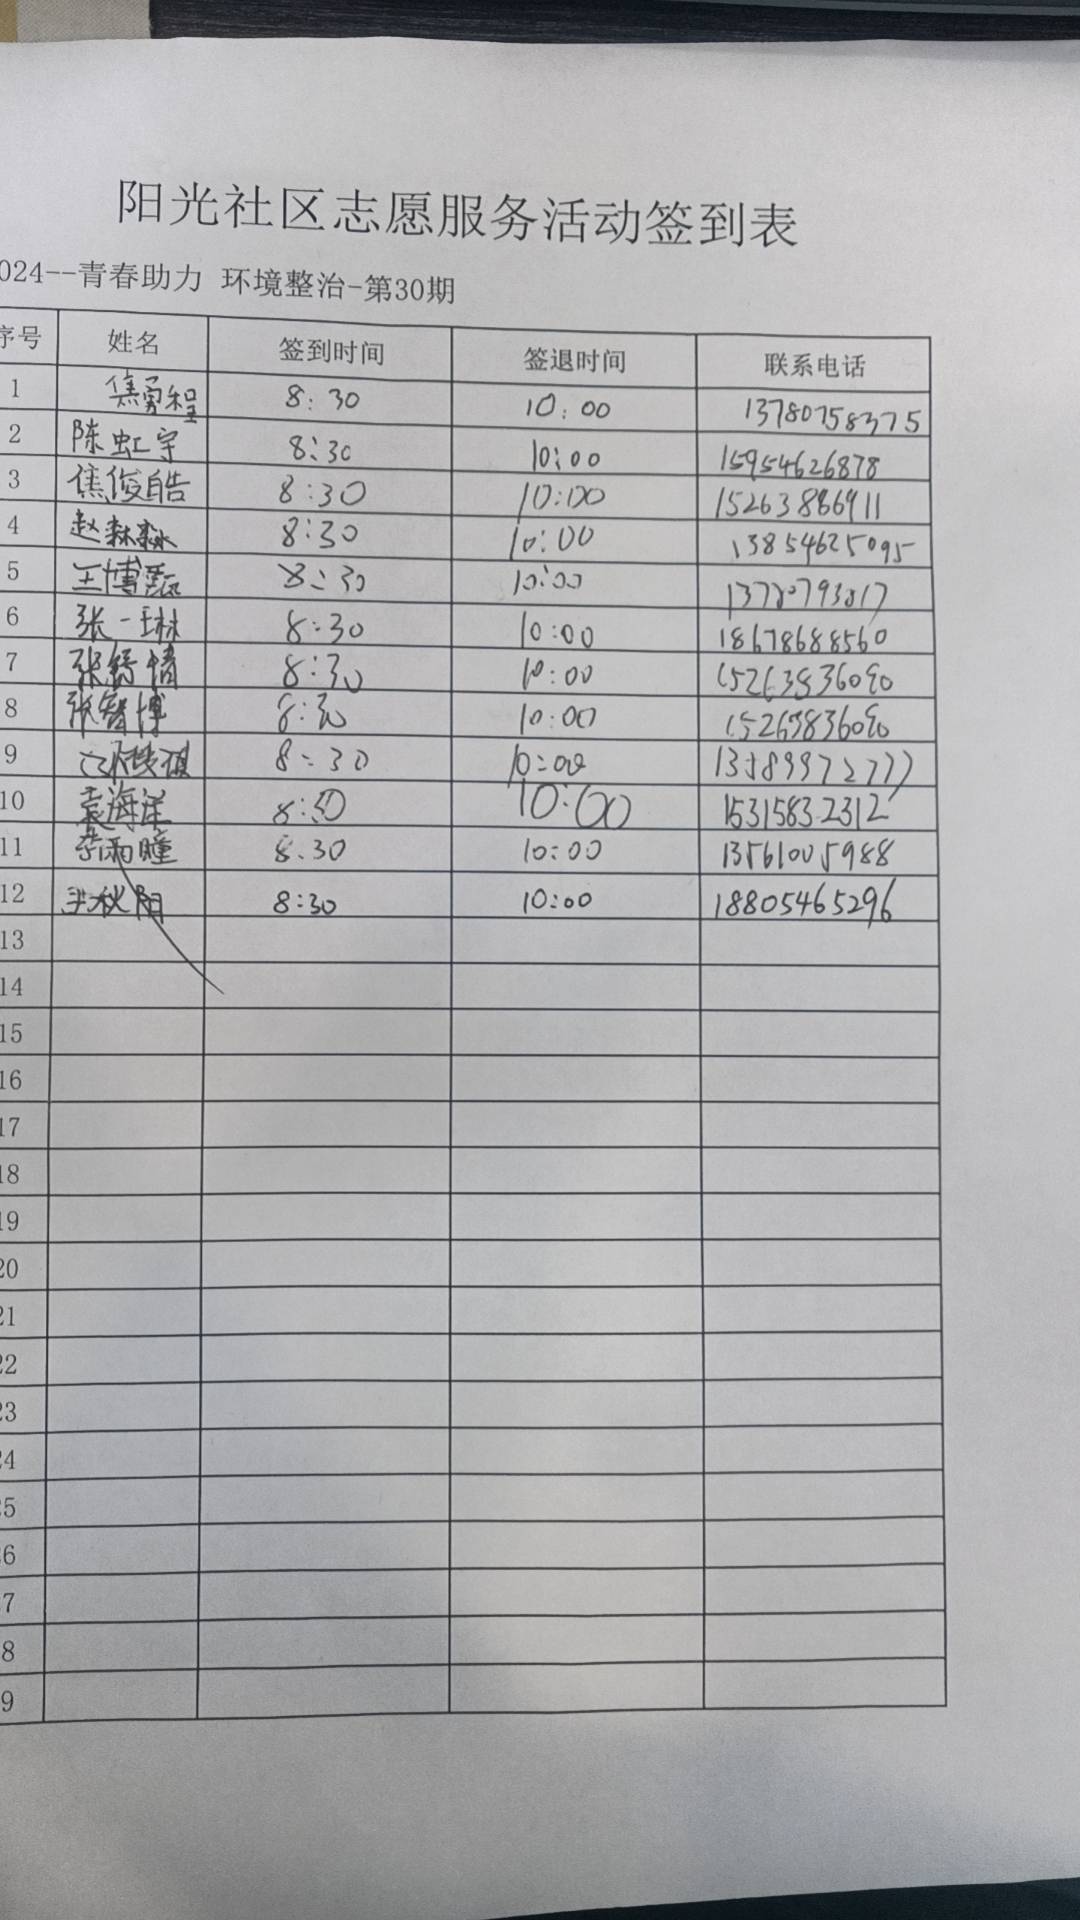 阳光社区志愿服务活动签到表
024--青春助力 环境整治-第30期
序号 姓名 签到时间 签退时间 联系电话
1 焦勇程 8:30 10:00 13780758375
2 陈虹宇 8:30 10:00 15954626878
3 焦俊皓 8:30 10:00 15263886911
4 赵森淼 8:30 10:00 13854625095
5 王博甄 8:30 10:00
6 张一琳 8:30 10:00 18678688560
7 张 情 8:30 10:00 15263836090
8 张智博 8:30 10:00 15263836090
9 8:30 10:00 13589972777
10 袁海洋 8:30 10:00 15315832312
11 李雨曈 8:30 10:00 13561005988
12 王秋阳 8:30 10:00 18805465296
13
14
15
16
17
18
19
20
21
22
23
24
25
6
7
8
9